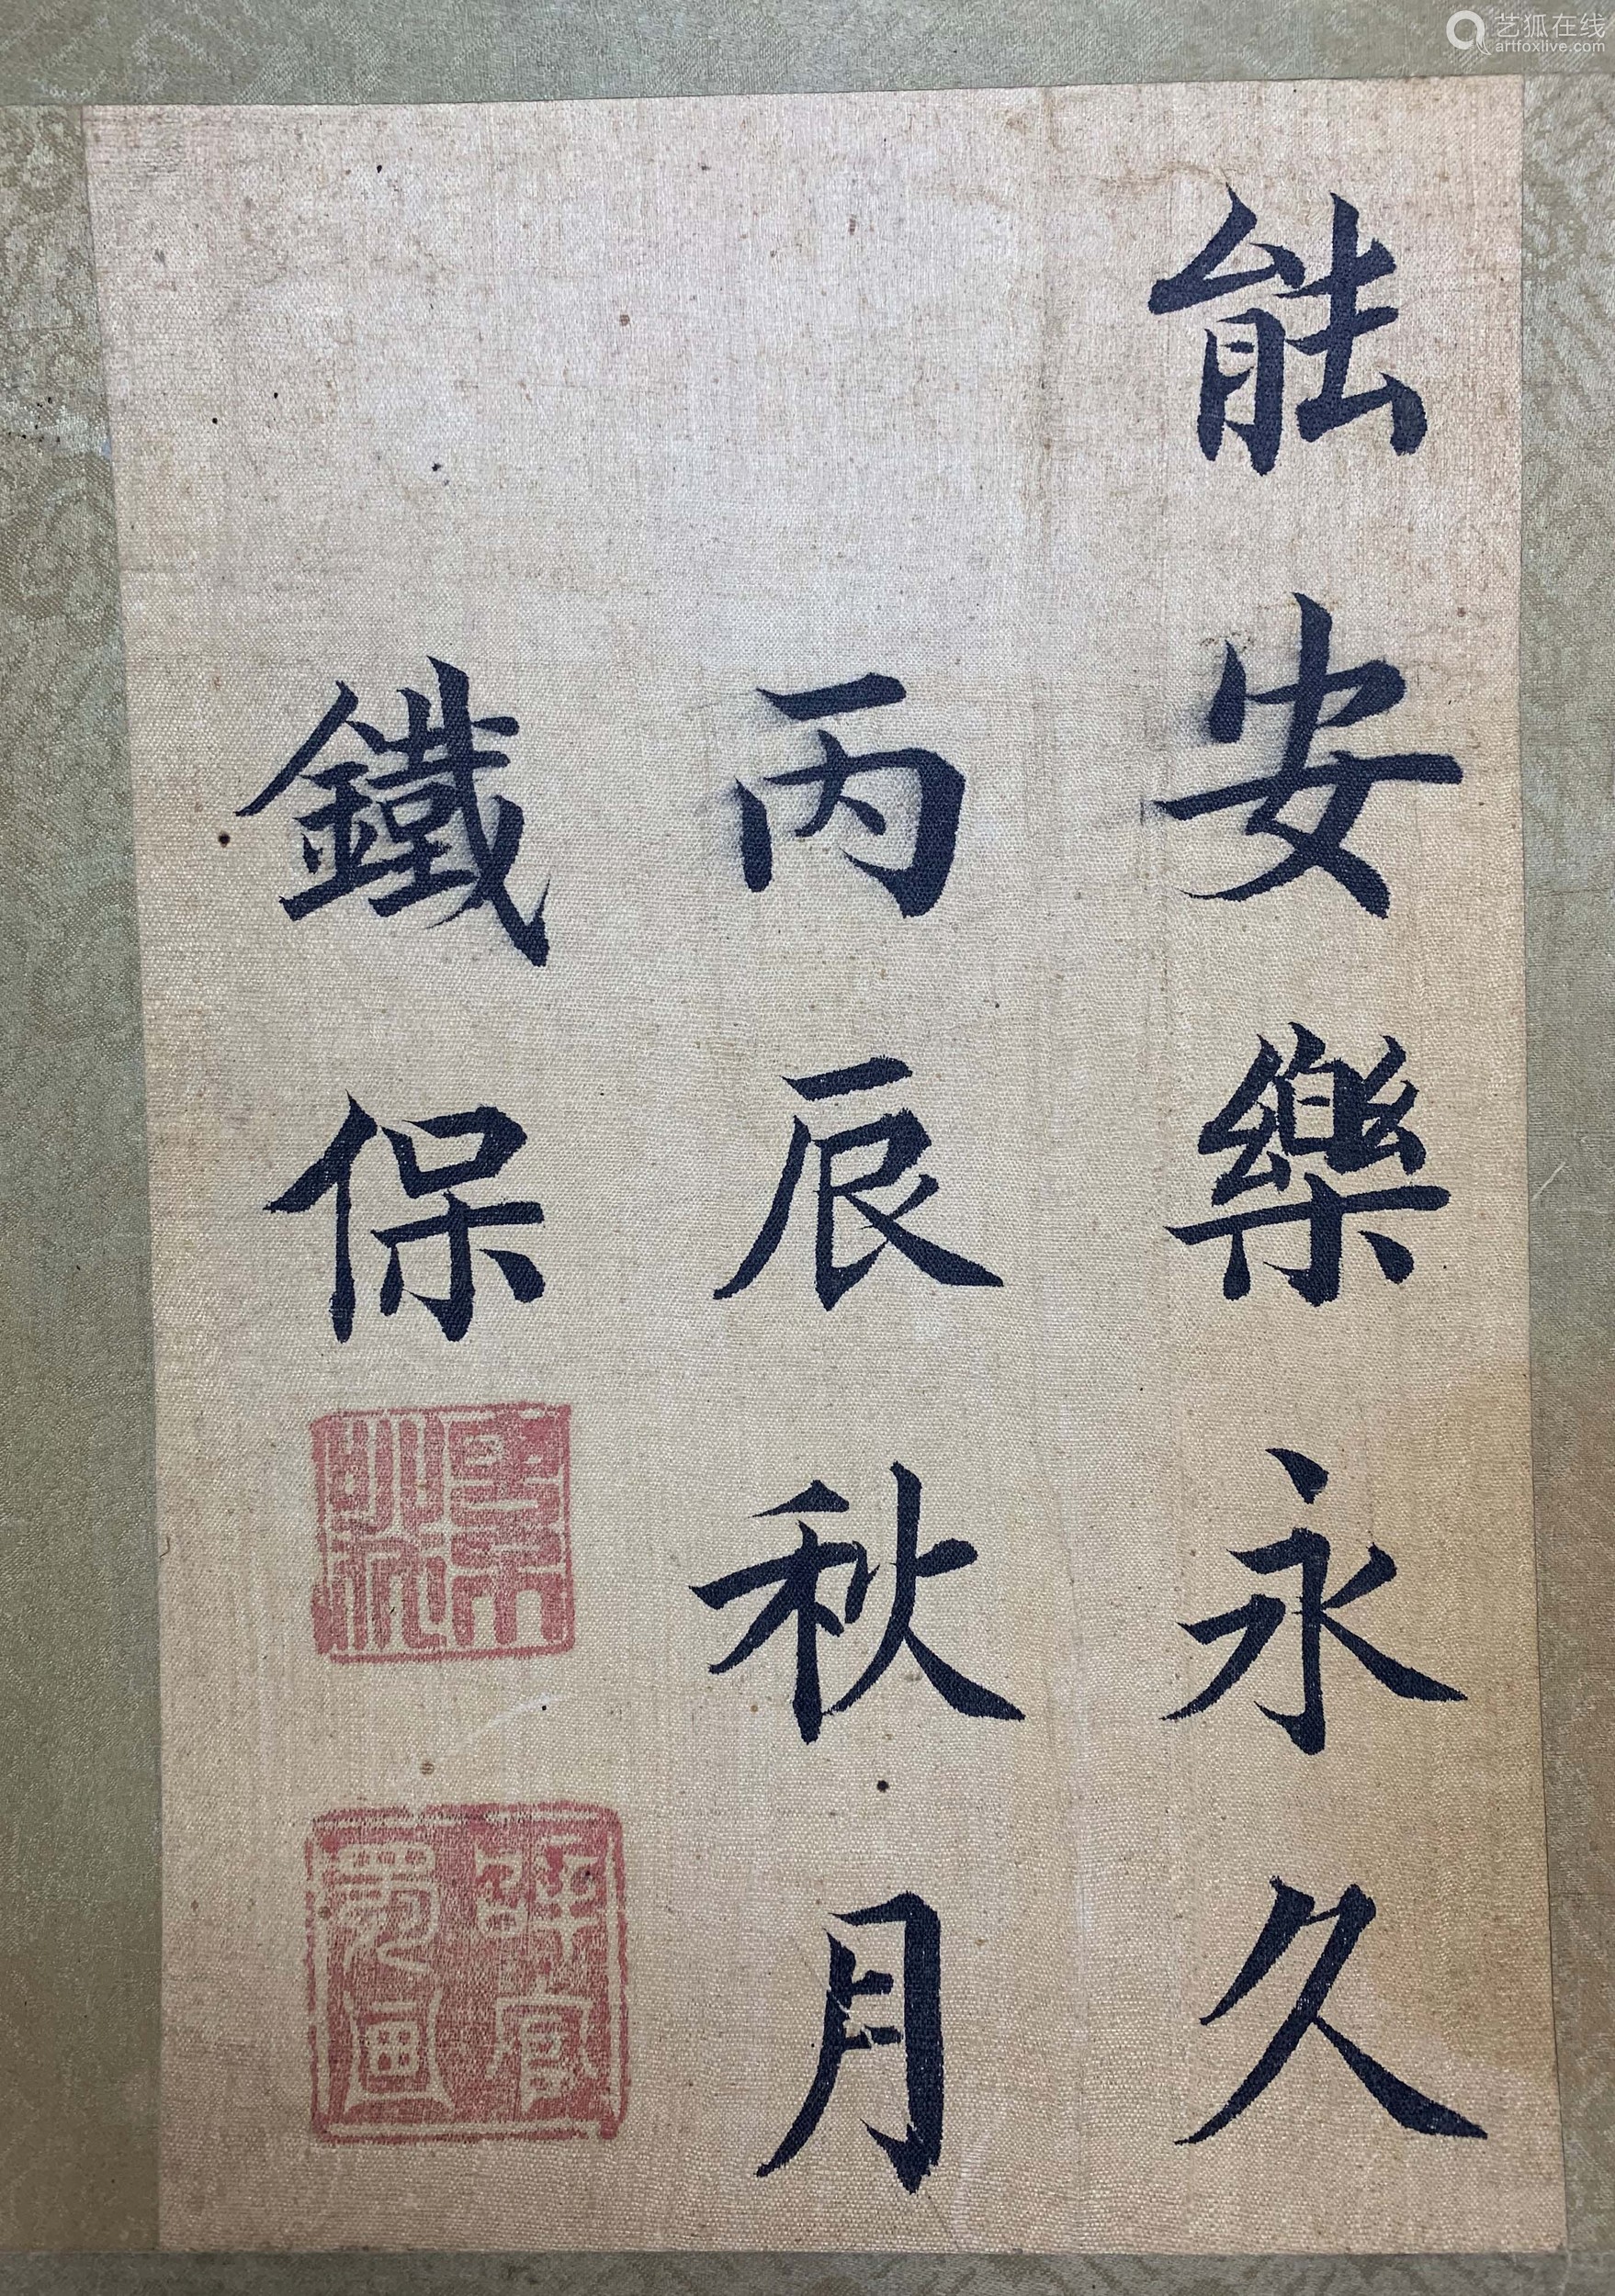 能安樂永久
丙辰秋月
鐵保
艺狐在线
artfoxlive.com